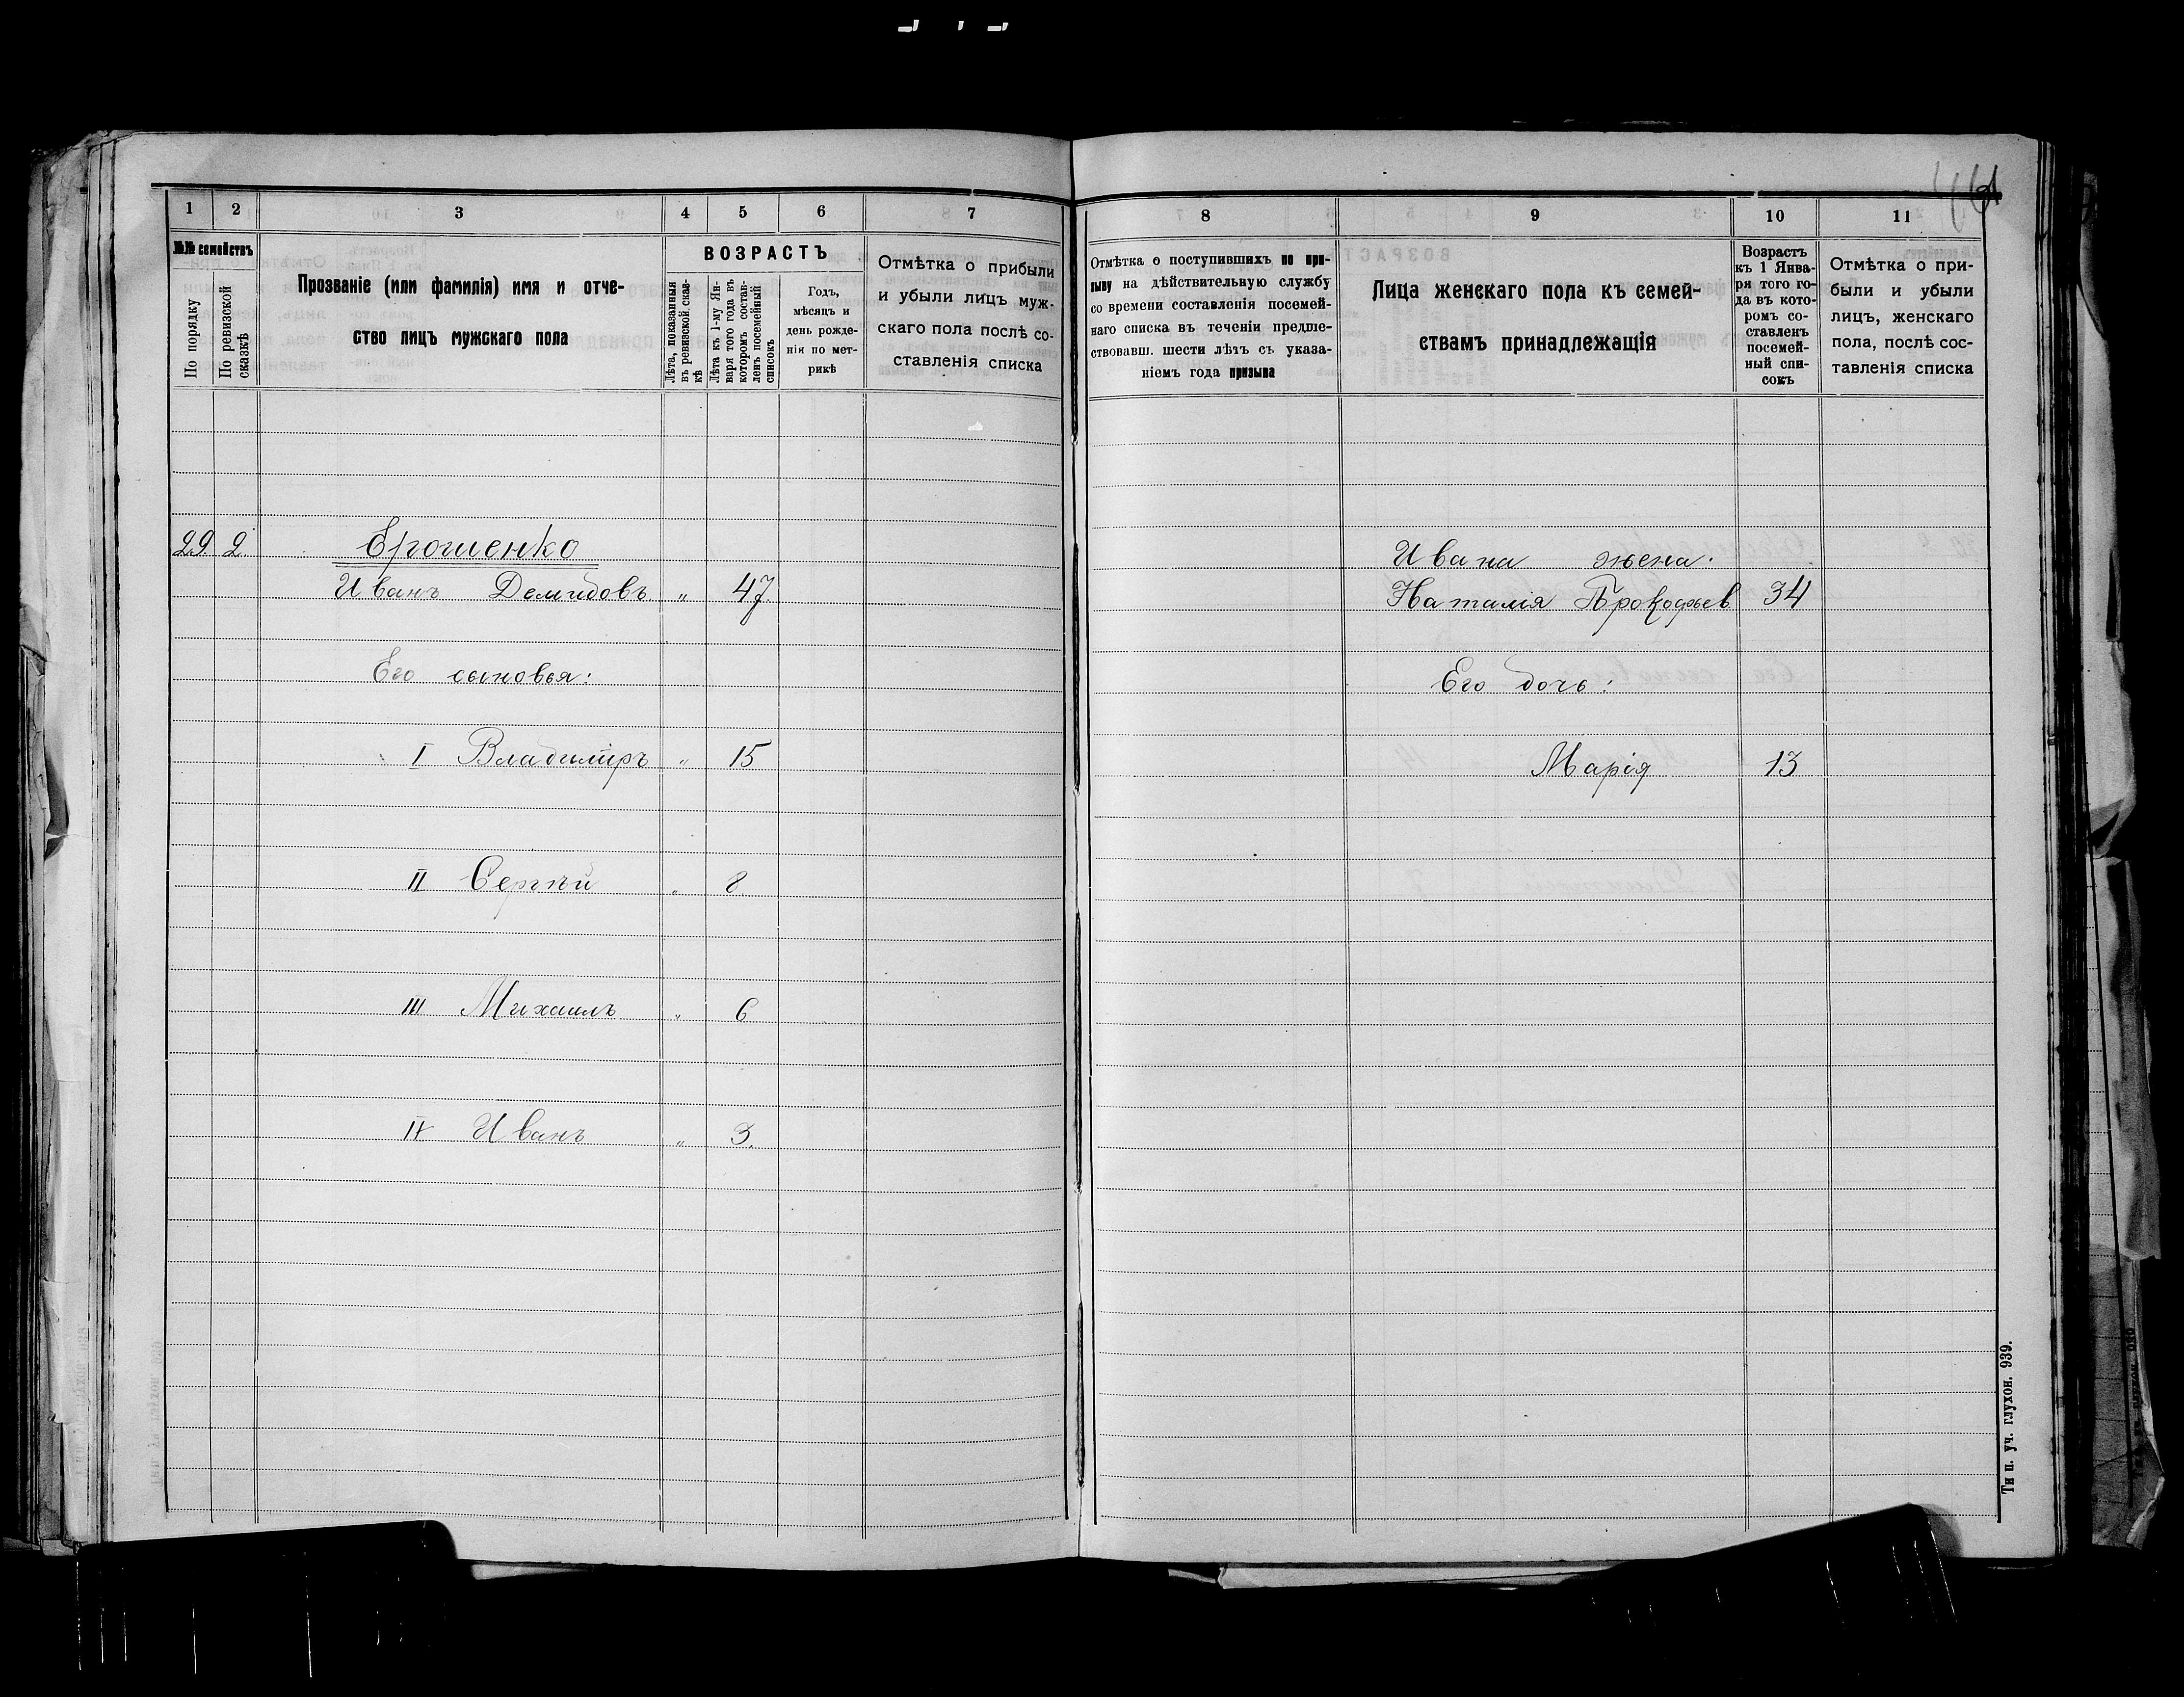 1 2 3 4 5 6 7
№№ семействъ
По порядку
По ревизской сказкѣ
Прозваніе (или фамилія) имя и отче-
ство лицъ мужскаго пола
ВОЗРАСТЪ
Лѣта, показанныя
въ ревизской сказ-
кѣ
Лѣта къ 1-му Ян-
варя того года въ
которомъ состав-
ленъ посемейный
списокъ
Годъ,
мѣсяцъ и
день рожде-
нія по мет-
рикѣ
Отмѣтка о прибыли
и убыли лицъ муж-
скаго пола послѣ со-
ставленія списка
29 2 Ерошенко
Иванъ Демидовъ „ 47
Его сыновья:
I Владиміръ „ 15
II Сергѣй „ 8
III Михаилъ „ 6
IV Иванъ „ 3.
8 9 10 11
Отмѣтка о поступившихъ по при-
зыву на дѣйствительную службу
со времени составленія посемей-
наго списка въ теченіи предше-
ствовавш. шести лѣтъ съ указа-
ніемъ года призыва
Лица женскаго пола къ семей-
ствамъ принадлежащія
Возрастъ
къ 1 Янва-
ря того го-
да въ кото-
ромъ со-
ставленъ
посемей-
ный спи-
сокъ
Отмѣтка о при-
были и убыли
лицъ, женскаго
пола, послѣ сос-
тавленія списка
Ивана жена:
Наталія Прокофьев 34
Его дочь:
Марія 13
Тип. уч. глухон. 939.